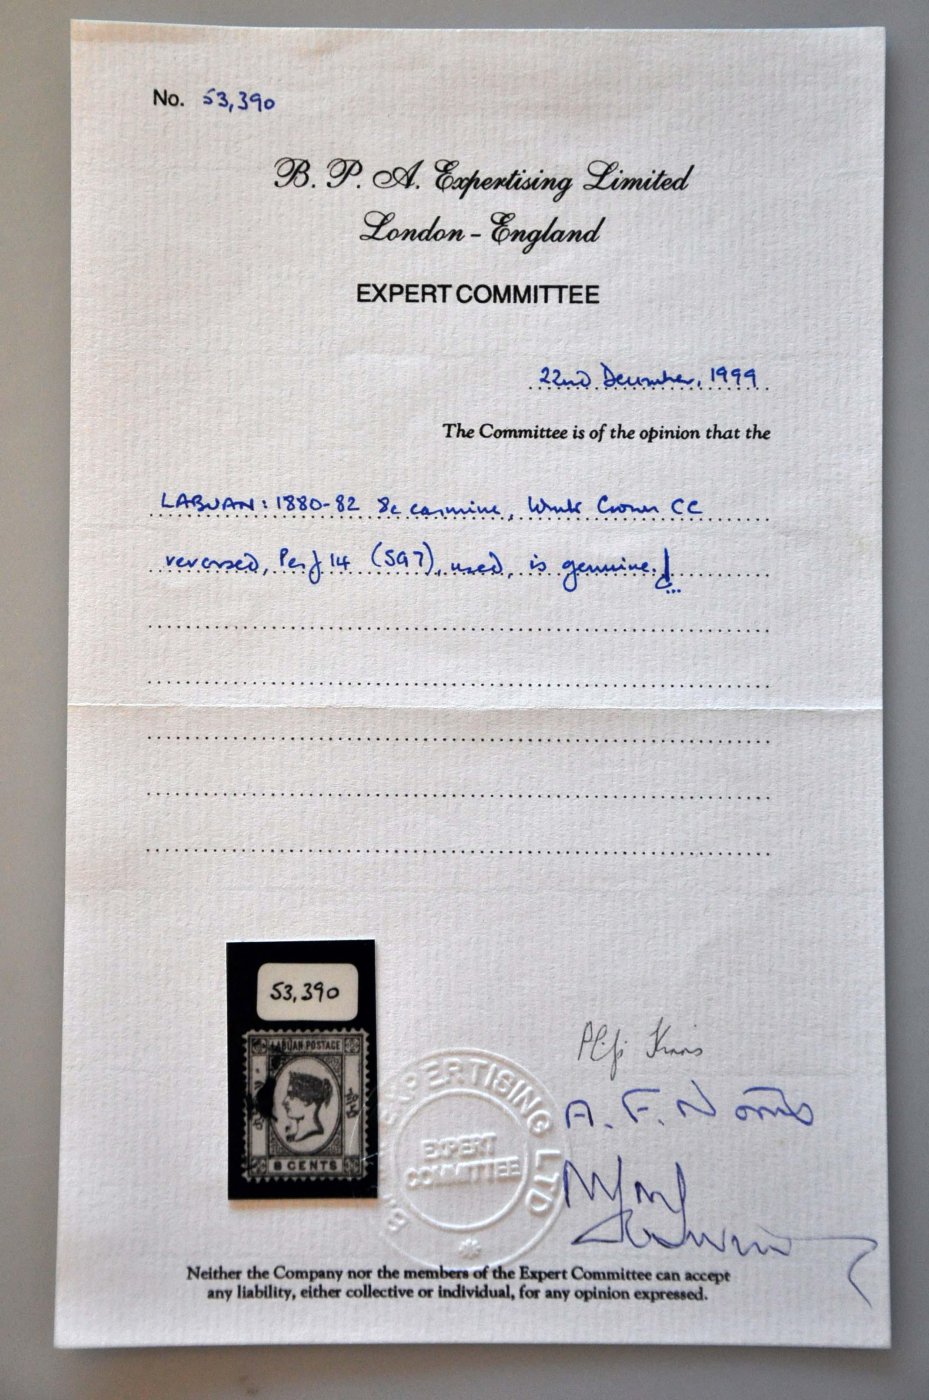 No. 53,390
B. P. A. Expertising Limited
London - England
EXPERT COMMITTEE
22nd December, 1999
The Committee is of the opinion that the
LABUAN: 1880-82 8c carmine, Wmk Crown CC
reversed, Perf 14 (SG7), used, is genuine.
53,390
LABUAN POSTAGE
8 CENTS
EXPERTISING LTD
EXPERT
COMMITTEE
A. F. Norris
Neither the Company nor the members of the Expert Committee can accept
any liability, either collective or individual, for any opinion expressed.